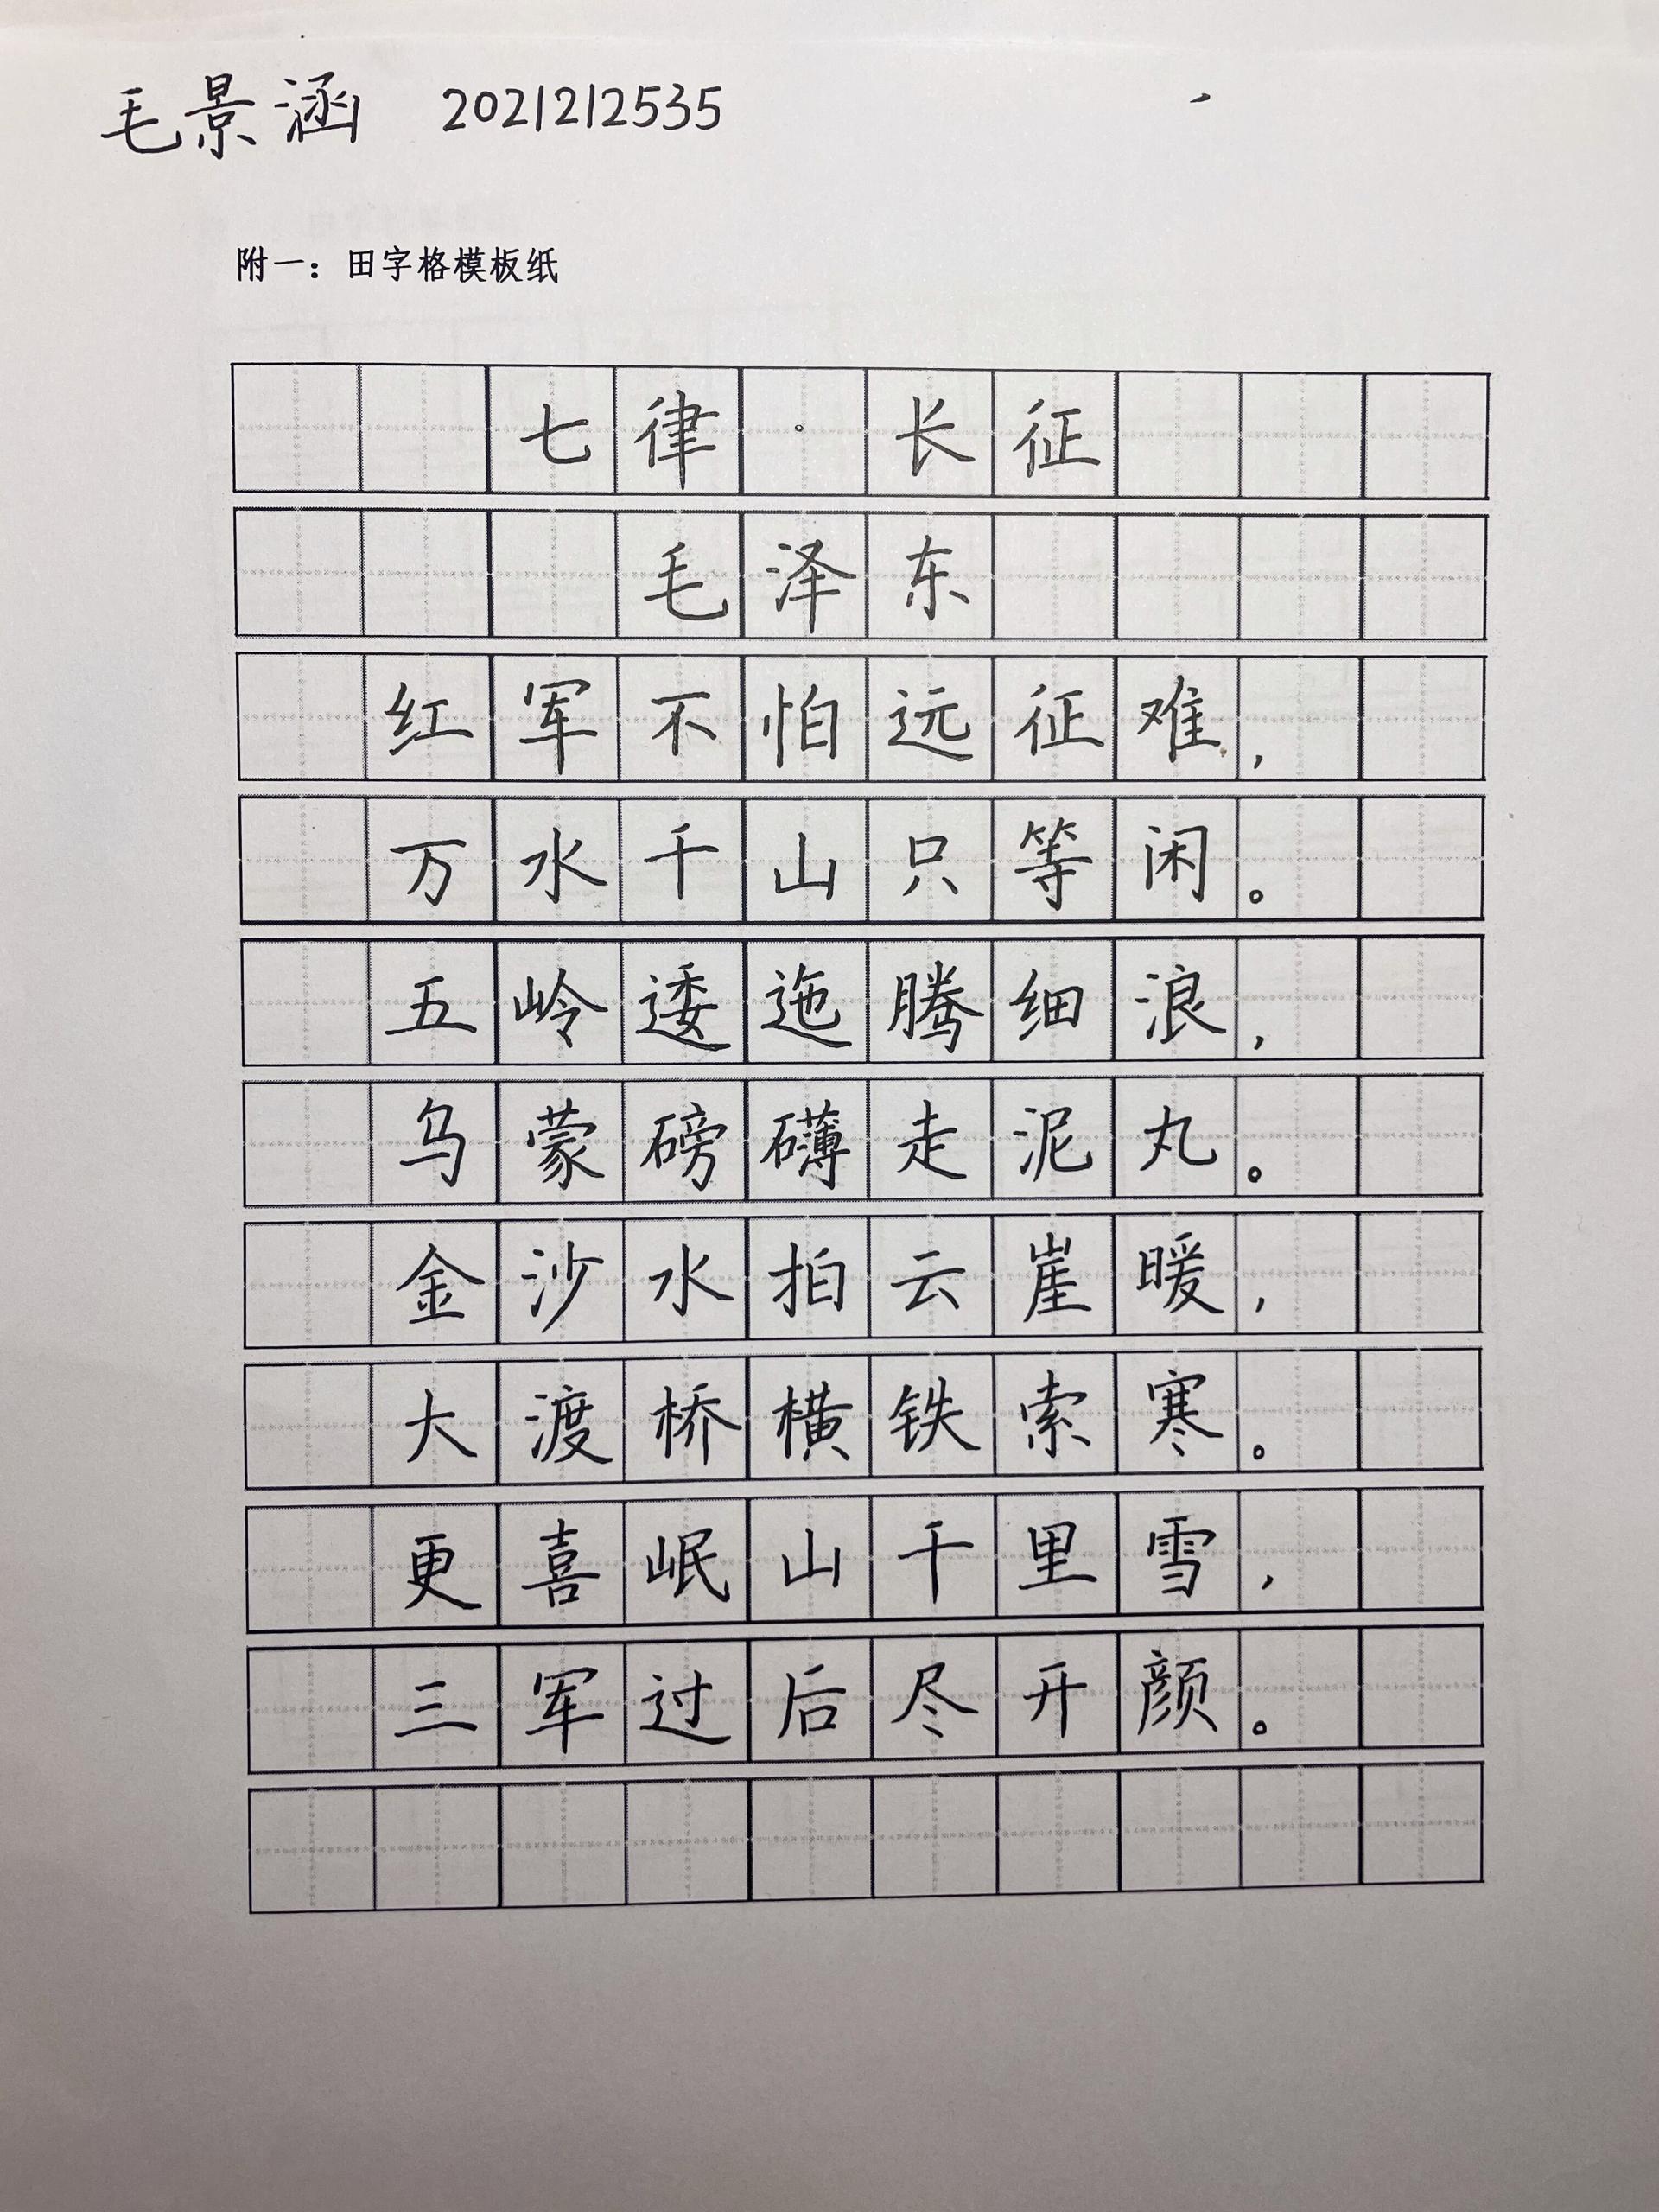 毛景涵 2021212535
附一：田字格模板纸
七律·长征
毛泽东
红军不怕远征难，
万水千山只等闲。
五岭逶迤腾细浪，
乌蒙磅礴走泥丸。
金沙水拍云崖暖，
大渡桥横铁索寒。
更喜岷山千里雪，
三军过后尽开颜。